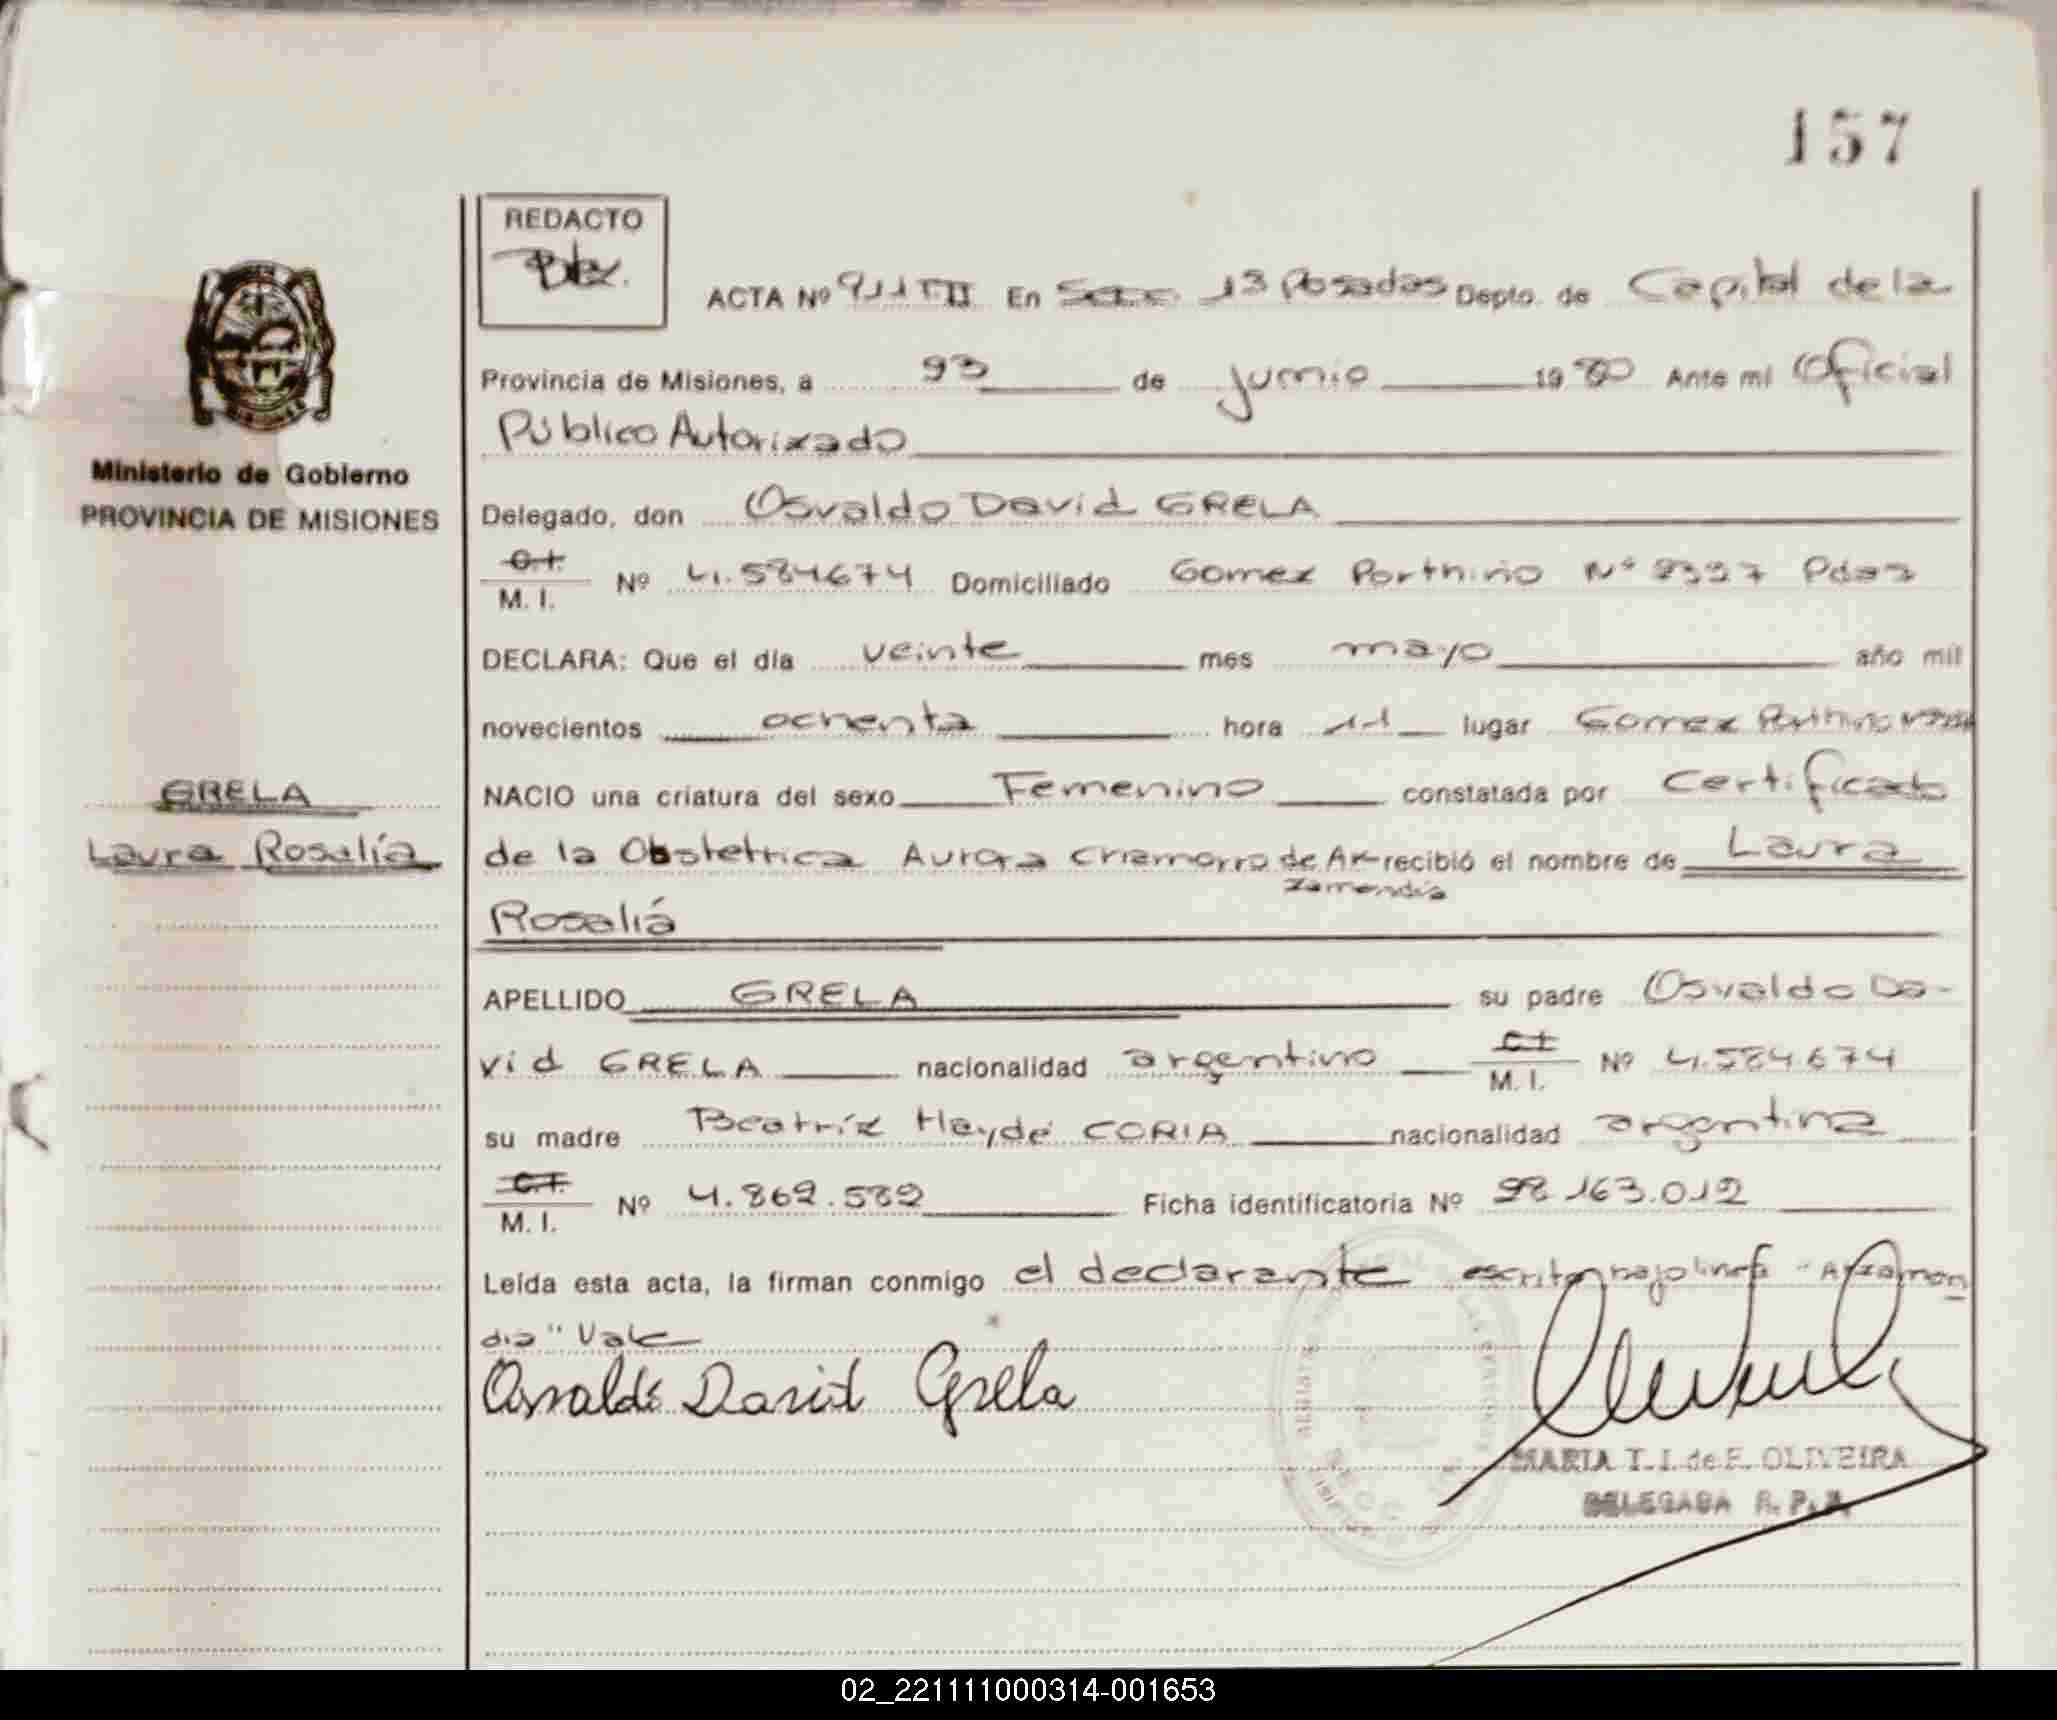 157
REDACTO
ACTA Nº 911 TII En Secc 13 Posadas Depto. de Capital de la
Provincia de Misiones, a 23 de junio 1980 Ante mi Oficial
Público Autorizado
Ministerio de Gobierno
PROVINCIA DE MISIONES
Delegado, don Osvaldo David GRELA
C.I.
M. I. Nº 4.584674 Domiciliado Gomez Porthiño Nº Pdas
DECLARA: Que el día veinte mes mayo año mil
novecientos ochenta hora 11 lugar Gomez Porthino
GRELA
NACIO una criatura del sexo Femenino constatada por Certificado
Laura Rosalía
de la Obstetrica Aurora Chamorro de Ar- recibió el nombre de Laura
zamendia
Rosaliá
APELLIDO GRELA su padre Osvaldo Da-
vid GRELA nacionalidad argentino C.I.
M. I. Nº 4.584.674
su madre Beatríz Haydé CORIA nacionalidad argentina
C.I.
M. I. Nº 4.869.589 Ficha identificatoria Nº 28.163.012
Leída esta acta, la firman conmigo el declarante escrito bajo linea "Arzamen
dia" Vale
Osvaldo David Grela
MARIA T. I. de F. OLIVEIRA
DELEGADA R. P. A.
02_221111000314-001653